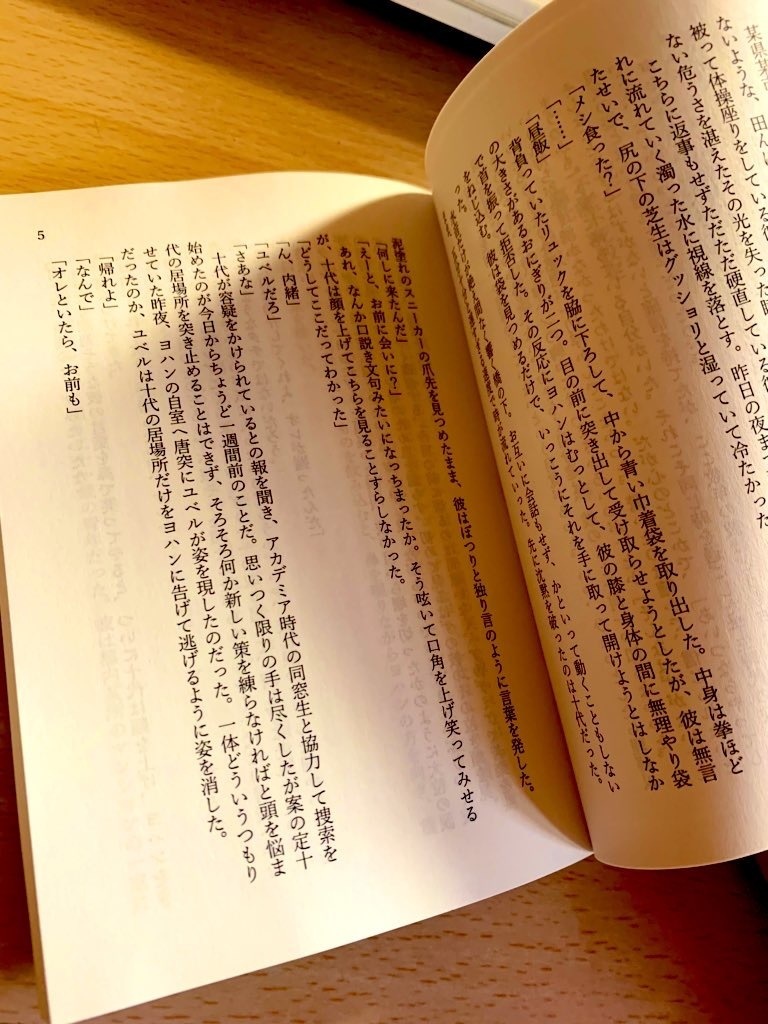 ないような、田んぼ
被って体操座りをしている彼
ない危うさを湛えたその光を失った
こちらに返事もせずただただ硬直している彼
れに流れていく濁った水に視線を落とす。昨日の夜ま
たせいで、尻の下の芝生はグッショリと湿っていて冷たかった
「メシ食った?」
「……」
「昼飯」
背負っていたリュックを脇に下ろして、中から青い巾着袋を取り出した。中身は拳ほど
の大きさがあるおにぎりが二つ。目の前に突き出して受け取らせようとしたが、彼は無言
で首を振って拒否した。その反応にヨハンはむっとして、彼の膝と身体の間に無理やり袋
をねじ込む。彼は袋を見つめるだけで、いっこうにそれを手に取って開けようとはしなか
った。お互いに会話もせず、かといって動くこともしない
時が流れていった。先に沈黙を破ったのは十代だった。
泥塗れのスニーカーの爪先を見つめたまま、彼はぽつりと独り言のように言葉を発した。
「何しに来たんだ」
「えーと、お前に会いに?」
あれ、なんか口説き文句みたいになっちまったか。そう呟いて口角を上げ笑ってみせる
が、十代は顔を上げてこちらを見ることすらしなかった。
「どうしてここだってわかった」
「ん、内緒」
「ユベルだろ」
「さあな」
十代が容疑をかけられているとの報を聞き、アカデミア時代の同窓生と協力して捜索を
始めたのが今日からちょうど一週間前のことだ。思いつく限りの手は尽くしたが案の定十
代の居場所を突き止めることはできず、そろそろ何か新しい策を練らなければと頭を悩ま
せていた昨夜、ヨハンの自室へ唐突にユベルが姿を現したのだった。一体どういうつもり
だったのか、ユベルは十代の居場所だけをヨハンに告げて逃げるように姿を消した。
「帰れよ」
「なんで」
「オレといたら、お前も」
5